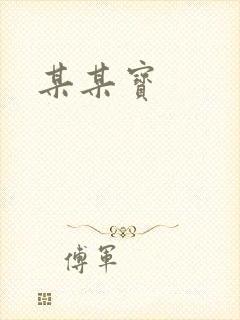 某某寳
傅軍